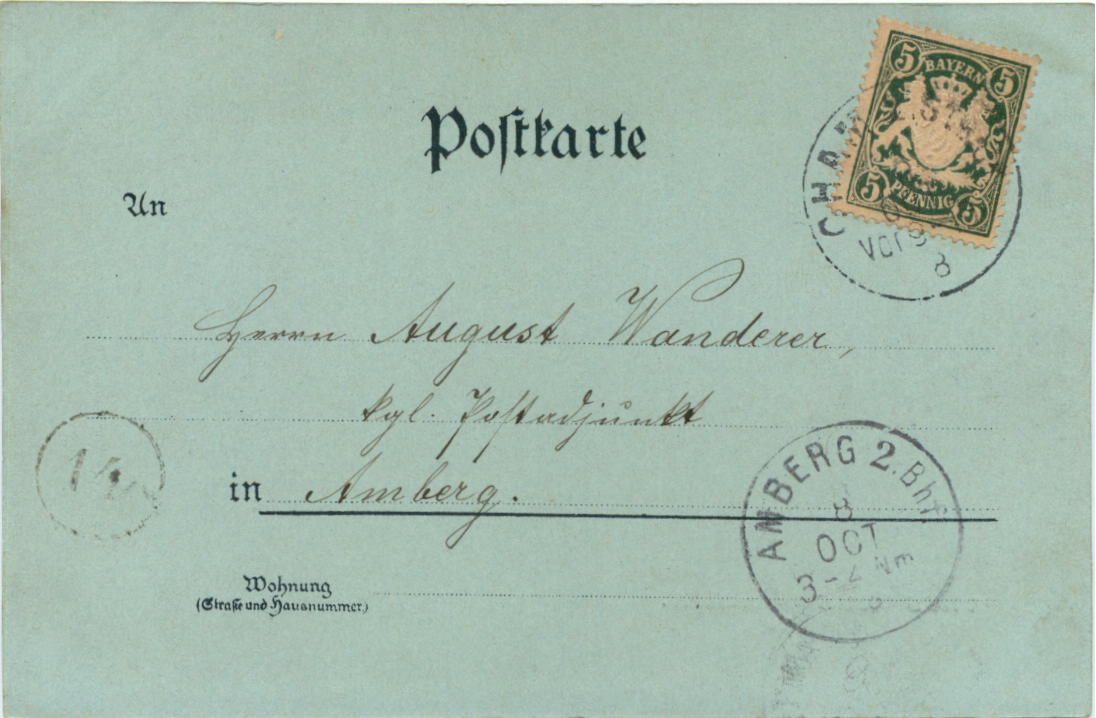 5 BAYERN 5
5 PFENNIG 5
CHAM
Vorm
8
Postkarte
An
Herrn August Wanderer,
kgl. Postadjunkt
in Amberg.
14
AMBERG 2. Bhf.
8
OCT
3-4 Nm
Wohnung
(Straße und Hausnummer)